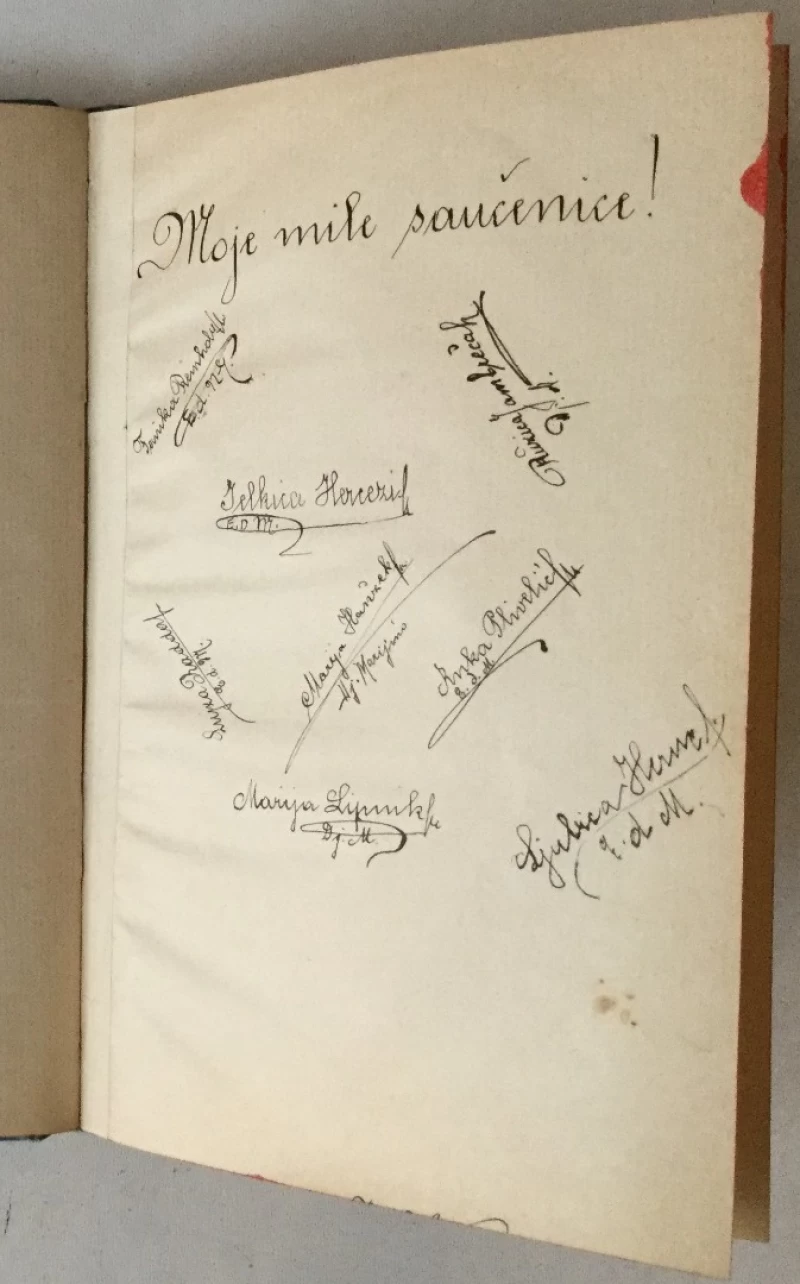 Moje mile saučenice!
Reinhold
Ružica Jambrečak
Jelkica Hercezi
E. D M.
Marija Hanžek
Dj. Marijino
Anka Plivelić
E. d. M
E. d. M.
Marija Lipnik
Dj M.
Ljubica
E. d M.